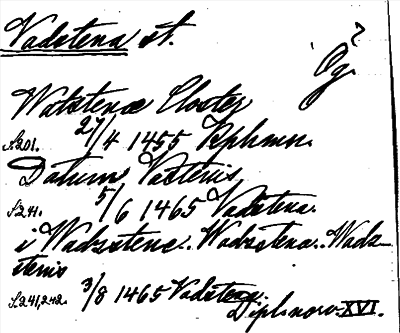 Vadstena st.
Ög. ?
Watstenæ Closter
S.201. 21/4 1455 Kphmn.
Datum Vastenis
S.241. 5/6 1465 Vadstena.
i Wadzstena.. Wadzstena.. Wadz-
stenis
S.241,242. 3/8 1465 Vadstena.
Dipl. norv. XVI.